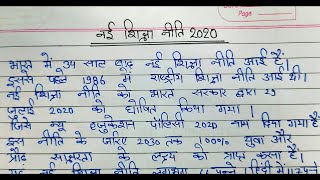 Date
Page
नई शिक्षा नीति 2020
भारत मे 34 साल बाद नई शिक्षा नीति आई है।
इससे पहले 1986 में राष्ट्रीय शिक्षा नीति आई थी।
नई शिक्षा नीति को भारत सरकार द्वारा 29
जुलाई 2020 को घोषित किया गया।
जिसे न्यू एजुकेशन पॉलिसी 2020 नाम दिया गया है
इस नीति के जरिए 2030 तक 100% युवा और
प्रौढ़ साक्षरता के लक्ष्य को प्राप्त करना है।
नई शिक्षा नीति